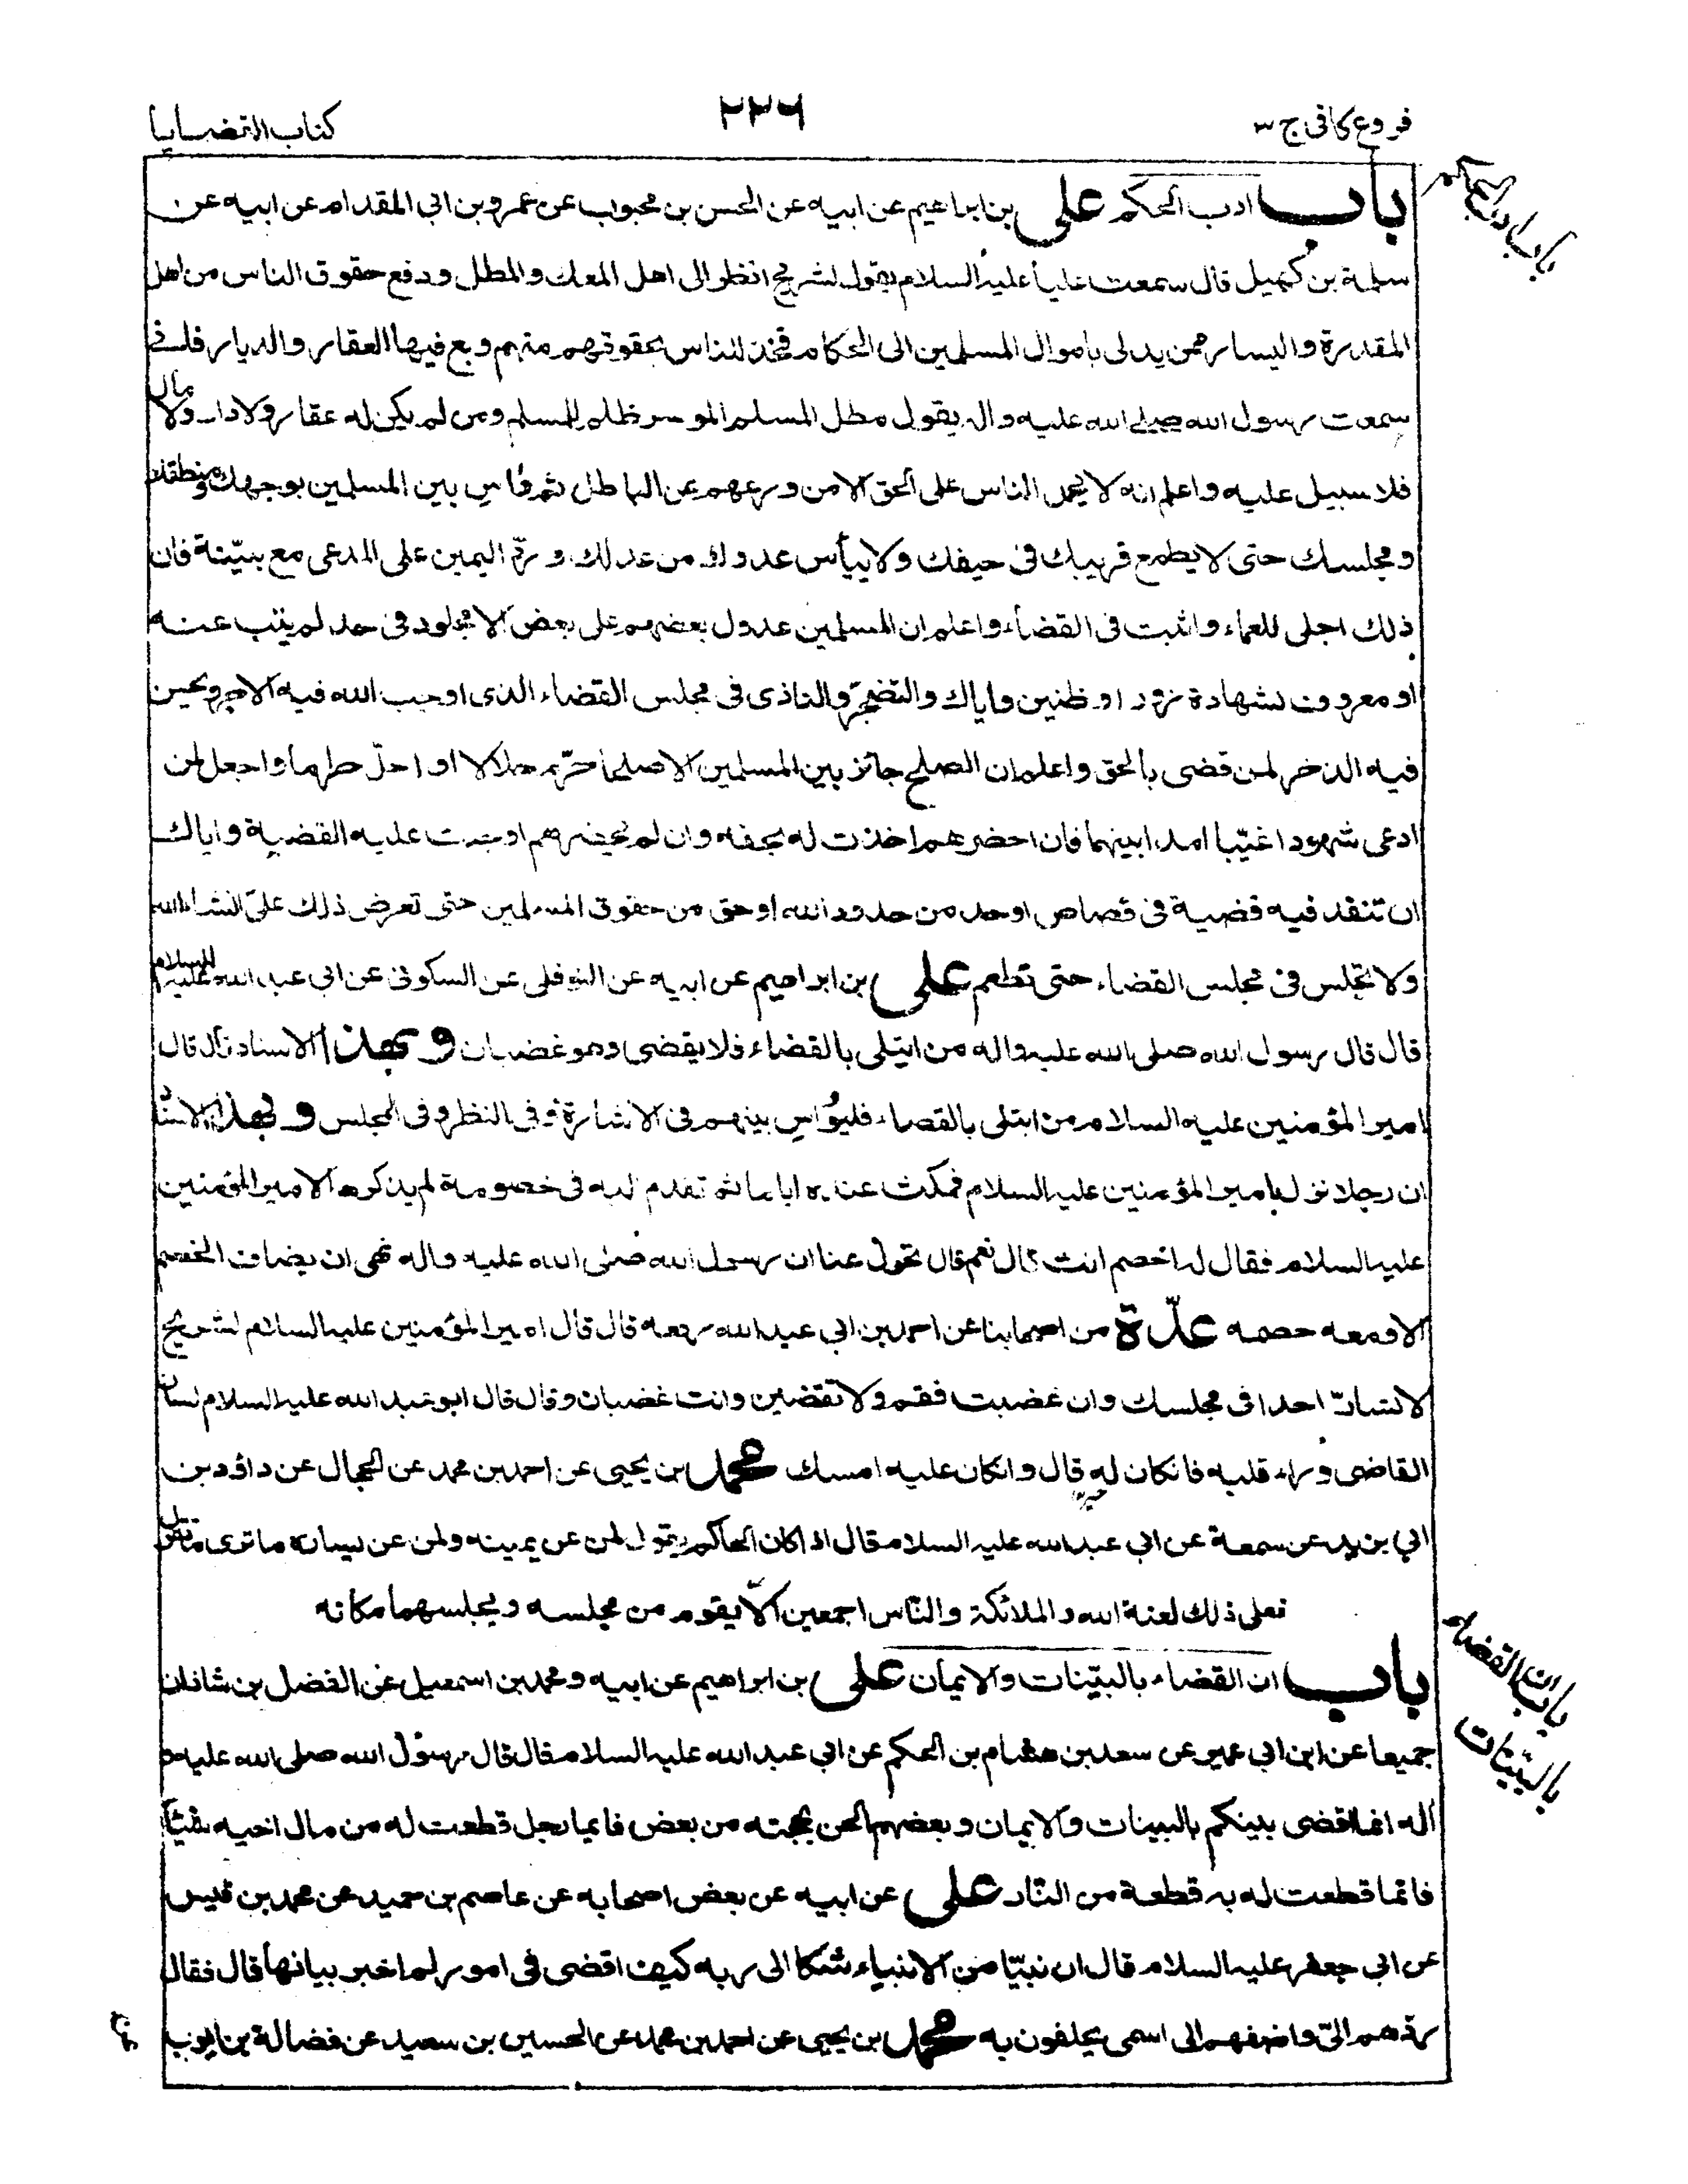 فروع كافى ج ٣
٢٢٦
كتاب القضايا
باب ادب الحكم
باب ادب الحكم على بن ابراهيم عن ابيه عن الحسن بن محبوب عن عمرو بن ابى المقدام عن ابيه عن
سلمة بن كهيل قال سمعت عليا عليه السلام يقول لشريح انظر الى اهل المعك والمطل ودفع حقوق الناس من اهل
المقدرة واليسار ممن يدلى باموال المسلمين الى الحكام فخذ للناس بحقوقهم منهم وبع فيها العقار والديار فانى
سمعت رسول الله صلى الله عليه واله يقول مطل المسلم الموسر ظلم للمسلم ومن لم يكن له عقار ولا دار ولا مال
فلا سبيل عليه واعلم انه لا يحمل الناس على الحق الا من ورعهم عن الباطل ثم واس بين المسلمين بوجهك ومنطقك
ومجلسك حتى لا يطمع قريبك فى حيفك ولا ييأس عدوك من عدلك و ردّ اليمين على المدعى مع بيّنة فان
ذلك اجلى للعماء واثبت فى القضاء واعلم ان المسلمين عدول بعضهم على بعض الا مجلود فى حد لم يتب عنه
او معروف بشهادة زور او ظنين واياك والتضجّر والتاذى فى مجلس القضاء الذى اوجب الله فيه الاجر ويحسن
فيه الذخر لمن قضى بالحق واعلم ان الصلح جائز بين المسلمين الا صلحا حرّم حلالا او احلّ حراما واجعل لمن
ادعى شهودا غيّبا امدا بينهما فان احضرهم اخذت له بحقه وان لم يحضرهم اوجبت عليه القضية واياك
ان تنفذ فيه قضية فى قصاص او حد من حدود الله او حق من حقوق المسلمين حتى تعرض ذلك علىّ انشاءالله
ولا تجلس فى مجلس القضاء حتى تطعم على بن ابراهيم عن ابيه عن النوفلى عن السكونى عن ابى عبد الله عليه السلام
قال قال رسول الله صلى الله عليه واله من ابتلى بالقضاء فلا يقضى وهو غضبان وبهذا الاسناد قال قال
امير المؤمنين عليه السلام من ابتلى بالقضاء فليواس بينهم فى الاشارة وفى النظر وفى المجلس وبهذا الاسناد
ان رجلا نزل بامير المؤمنين عليه السلام فمكث عنده اياما ثم تقدم اليه فى خصومة لم يذكرها لامير المؤمنين
عليه السلام فقال له اخصم انت قال نعم قال تحول عنا ان رسول الله صلى الله عليه واله نهى ان يضاف الخصم
الا ومعه خصمه عدّة من اصحابنا عن احمد بن ابى عبد الله رفعه قال قال امير المؤمنين عليه السلام لشريح
لا تسارّ احدا فى مجلسك وان غضبت فقم ولا تقضين وانت غضبان وقال قال ابو عبد الله عليه السلام لسان
القاضى وراء قلبه فان كان له قال وان كان عليه امسك محمد بن يحيى عن احمد بن محمد عن الحجال عن داود بن
ابى يزيد عن سمعة عن ابى عبد الله عليه السلام قال اذا كان الحاكم يقول لمن عن يمينه ولمن عن يساره ما ترى ما تقول
فعلى ذلك لعنة الله والملائكة والناس اجمعين الّا يقوم من مجلسه ويجلسهما مكانه
باب ان القضاء بالبيّنات
باب ان القضاء بالبيّنات والايمان على بن ابراهيم عن ابيه ومحمد بن اسمعيل عن الفضل بن شاذان
جميعا عن ابن ابى عمير عن سعد بن هشام بن الحكم عن ابى عبد الله عليه السلام قال قال رسول الله صلى الله عليه و
اله انما اقضى بينكم بالبينات والايمان وبعضهم الحن بحجته من بعض فايما رجل قطعت له من مال اخيه شيئا
فانما قطعت له به قطعة من النّار على عن ابيه عن بعض اصحابه عن عاصم بن حميد عن محمد بن قيس
عن ابى جعفر عليه السلام قال ان نبيّا من الانبياء شكا الى ربه كيف اقضى فى امور لم اخبر ببيانها قال فقال
ردّهم الىّ واضفهم الى اسمى يحلفون به محمد بن يحيى عن احمد بن محمد عن الحسين بن سعيد عن فضالة بن ايوب